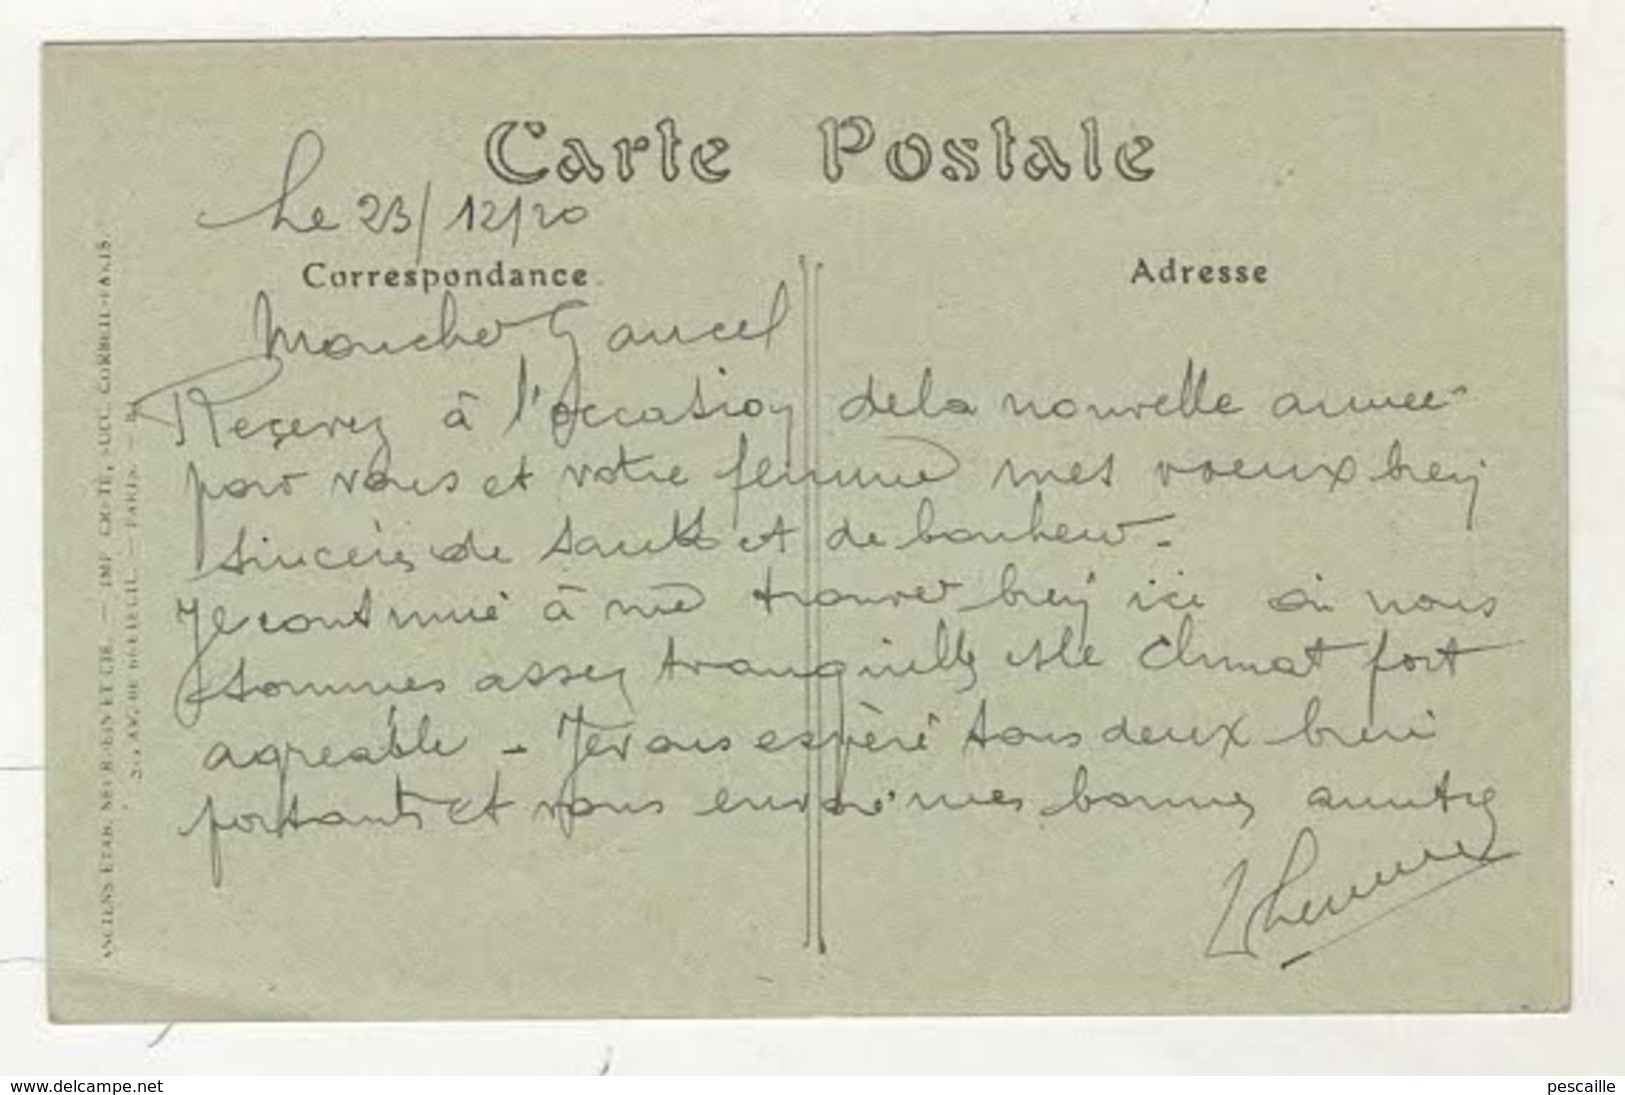 Carte Postale
Le 23/12/20
Correspondance
Adresse
Mon cher Gaucel
Recevez à l'occasion de la nouvelle année
pour vous et votre femme mes voeux bien
sincères de santé et de bonheur.
Je continue à me trouver bien ici où nous
sommes assez tranquilles et le climat fort
agréable - Je vous espère tous deux bien
portants et vous envoie mes bonnes amitiés
ANCIENS ETAB. NEURDEIN ET CIE. — IMP. CRÉTÉ, SUCC. CORBEIL-PARIS.
AV. DE BRETEUIL. — PARIS. —
www.delcampe.net
pescaille